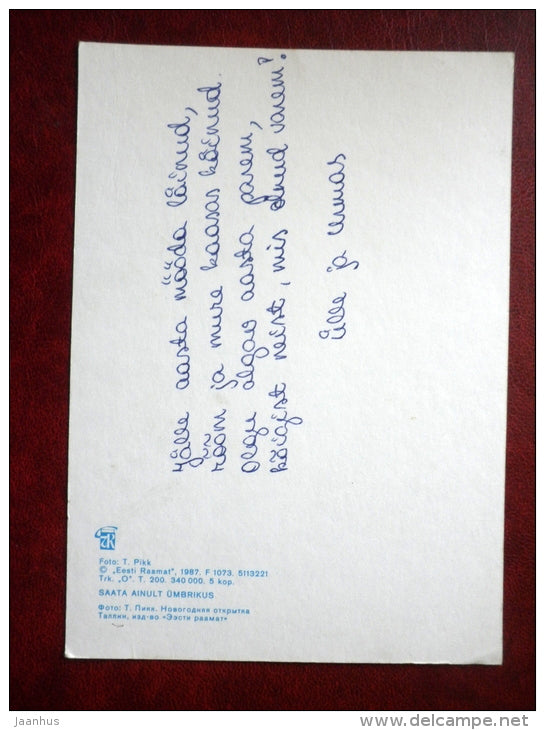 Jälle aasta mööda läinud,
rõõm ja mure kaasas käinud.
Olgu algav aasta parem,
kõigist neist, mis olnud varem!
Ülle ja Urmas
Foto: T. Pikk
© „Eesti Raamat", 1987. F 1073. 5113221
Trk. „O". T. 200. 340 000. 5 kop.
SAATA AINULT ÜMBRIKUS
Фото: Т. Пикк. Новогодняя открытка
Таллин, изд-во «Ээсти раамат»
jaanhus
www.delcampe.net